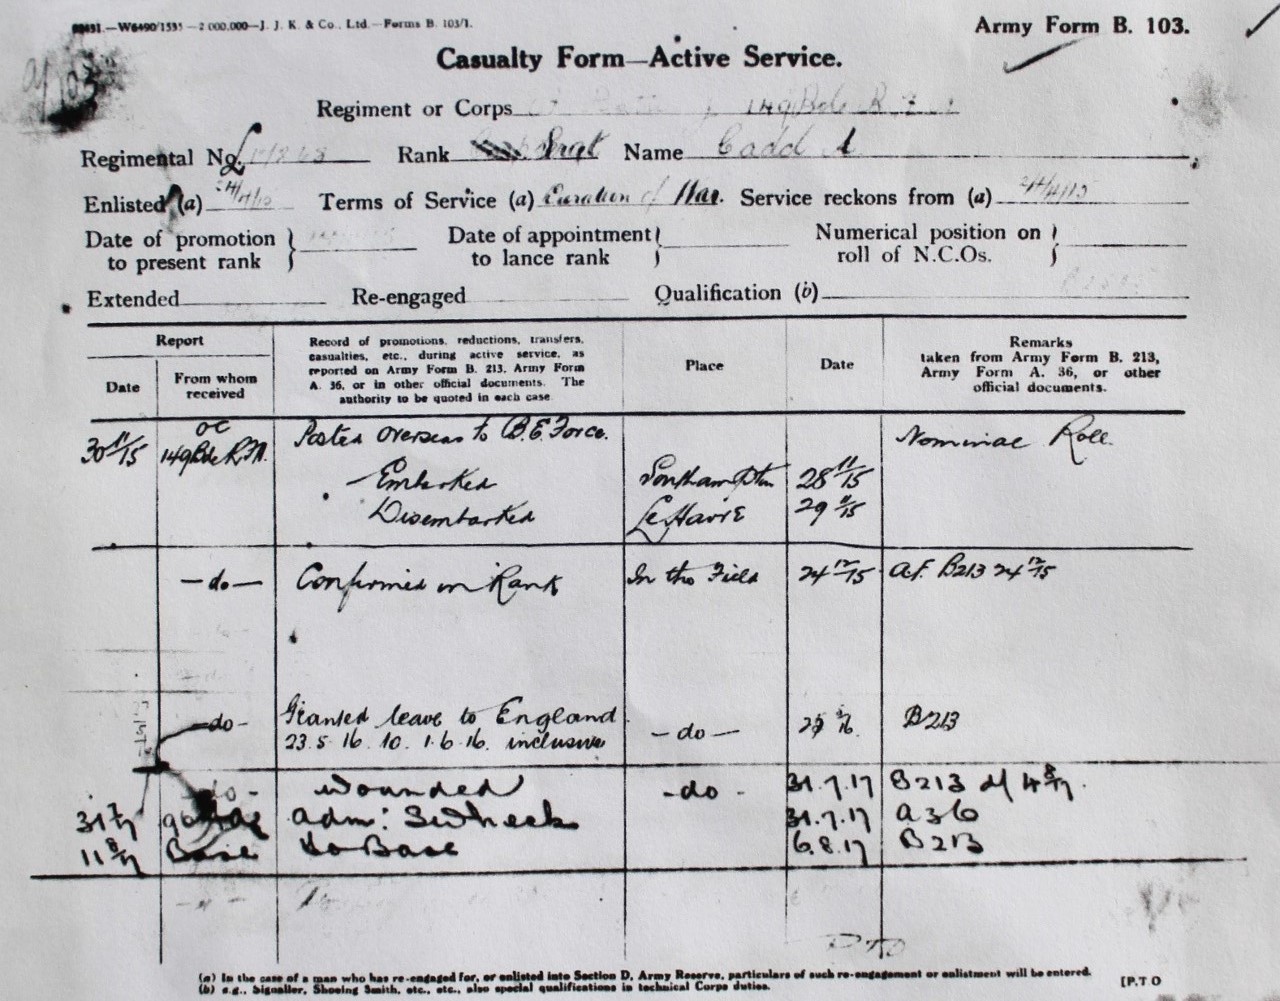 —W6490/1535—2 000,000—J. J. K. & Co., Ltd.—Forms B. 103/1.
Army Form B. 103.
Casualty Form—Active Service.
Regiment or Corps 149 Bde R F
Regimental No. Rank Sergt Name Cadd A
Enlisted (a) 24/4/15 Terms of Service (a) Duration of War. Service reckons from (a) 24/4/15
Date of promotion to present rank
Date of appointment to lance rank
Numerical position on roll of N.C.Os.
Extended Re-engaged Qualification (b)
Report
Date
From whom received
Record of promotions, reductions, transfers,
casualties, etc., during active service, as
reported on Army Form B. 213, Army Form
A. 36, or in other official documents. The
authority to be quoted in each case
Place
Date
Remarks
taken from Army Form B. 213,
Army Form A. 36, or other
official documents.
30 11/15 OC 149 Bde R.F.A. Posted overseas to B.E. Force. Nominal Roll
Embarked Southampton 28 11/15
Disembarked Le Havre 29 11/15
—do— Confirmed in Rank In the Field 24 12/15 A.F. B213 24 12/15
—do— Granted leave to England —do— B213
23.5.16. 10. 1.6.16. inclusive
do - wounded -do- 31.7.17 B213 d/ 4 8/17.
31 7/17 adm: 31.7.17 A36
11 8/17 Base to Base 6.8.17 B213
PTO
(a) In the case of a man who has re-engaged for, or enlisted into Section D, Army Reserve, particulars of such re-engagement or enlistment will be entered.
(b) e.g., Signaller, Shoeing Smith, etc., etc., also special qualifications in technical Corps duties.
[P.T O